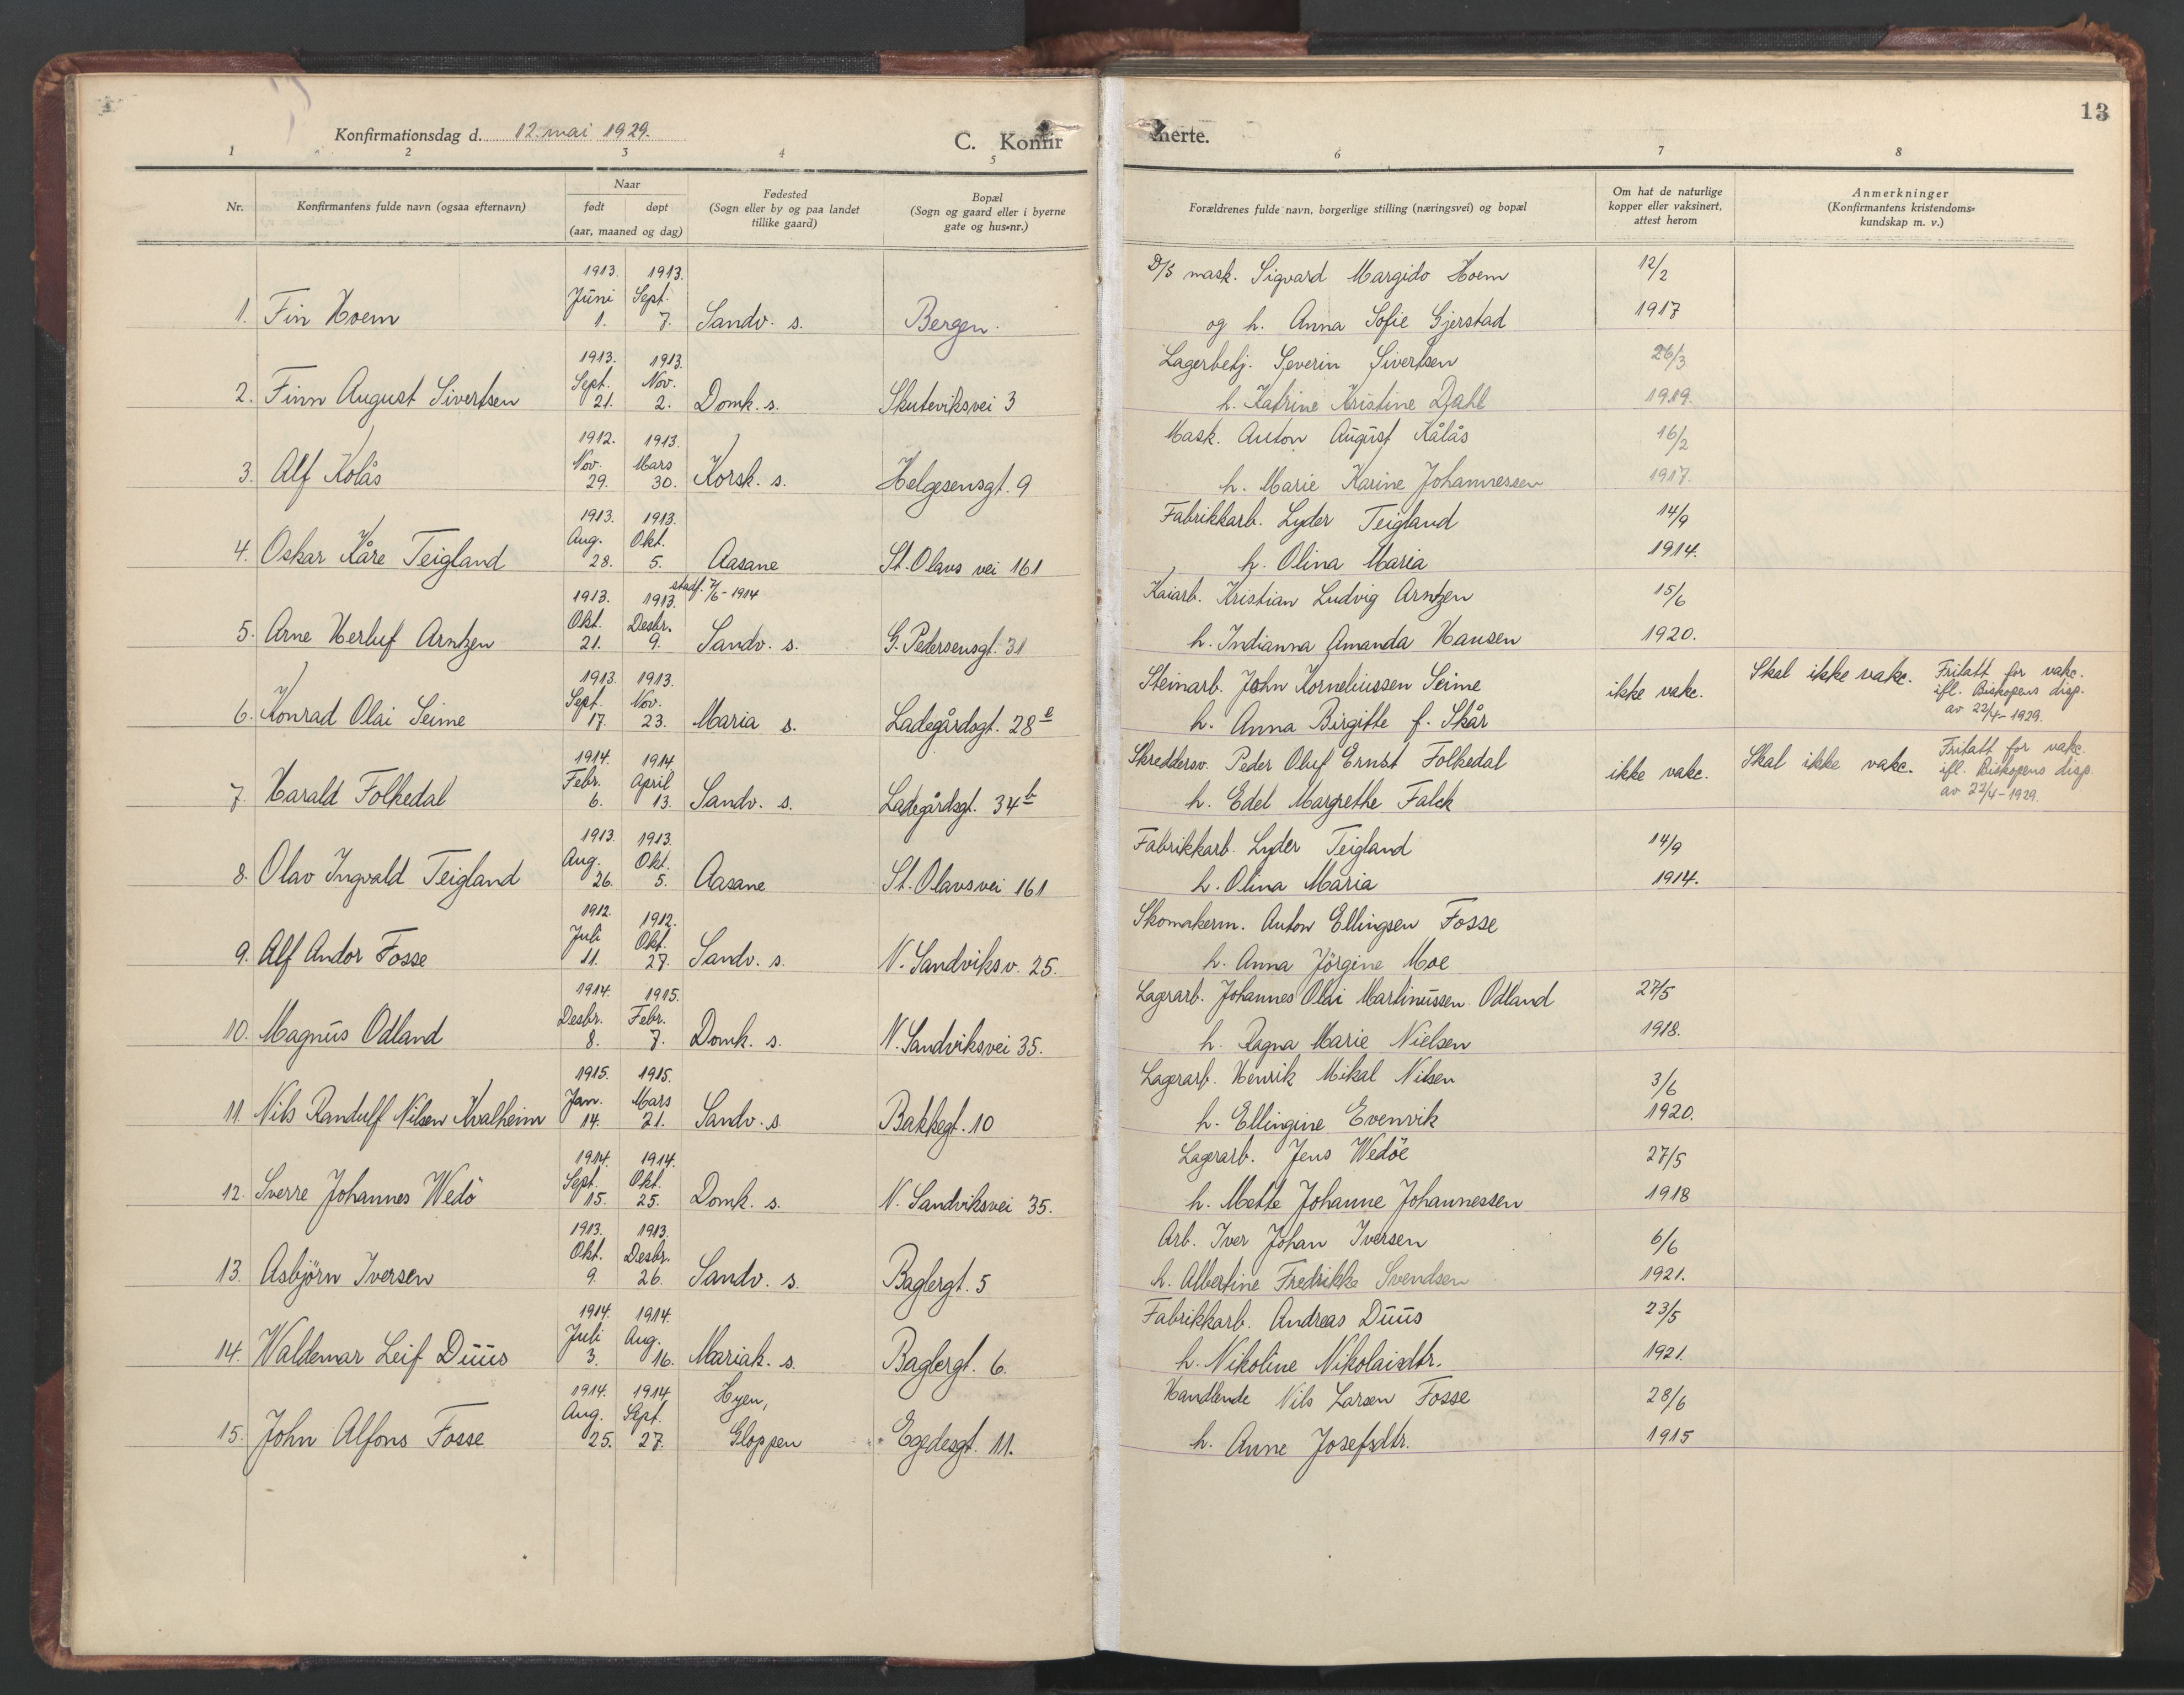 Konfirmationsdag d. 12. mai 1929.
C. Konfirmerte.
13
1 2 3 4 5 6 7 8
Nr.
Konfirmantens fulde navn (ogsaa efternavn)
Naar
født døpt
(aar, maaned og dag)
Fødested
(Sogn eller by og paa landet
tillike gaard)
Bopæl
(Sogn og gaard eller i byerne
gate og hus-nr.)
Forældrenes fulde navn, borgerlige stilling (næringsvei) og bopæl
Om hat de naturlige
kopper eller vaksinert,
attest herom
Anmerkninger
(Konfirmantens kristendoms-
kundskap m. v.)
1913. 1913. D/S mask. Sigvard Margido Hoem 12/2
Juni Sept.
1. Fin Hoem 1. 7. Sandv. s. Bergen. og h. Anna Sofie Gjerstad 1917
1913. 1913. Lagerbetj. Severin Sivertsen 26/3
Sept. Nov.
2. Finn August Sivertsen 21. 2. Domk. s. Skuteviksvei 3 h. Katrine Kristine Dahl 1919.
1912. 1913. Mask. Anton August Kålås 16/2
Nov. Mars
3. Alf Kolås 29. 30. Korsk. s. Helgesensgt. 9 h. Marie Karine Johannessen 1917.
1913. 1913. Fabrikkarb. Lyder Teigland 14/9
Aug. Okt.
4. Oskar Kåre Teigland 28. 5. Aasane St. Olavs vei 161 h. Olina Maria 1914.
stadf. 7/6 - 1914
1913. 1913. Kaiarb. Kristian Ludvig Arntzen 15/6
Okt. Desbr.
5. Arne Herluf Arntzen 21. 9. Sandv. s. G. Pedersensgt. 31 h. Indianna Amanda Hansen 1920.
1913. 1913. Steinarb. John Korneliussen Seime ikke vakc. Skal ikke vakc. Fritatt for vakc.
ifl. Biskopens disp.
av 22/4 - 1929.
Sept. Nov.
6. Konrad Olai Seime 17. 23. Maria s. Ladegårdsgt. 28 e h. Anna Birgitte f. Skår
1914. 1914. Skreddersv. Peder Oluf Ernst Folkedal ikke vakc. Skal ikke vakc. Fritatt for vakc.
ifl. Biskopens disp.
av 22/4 - 1929.
Febr. April
7. Harald Folkedal 6. 13. Sandv. s. Ladegårdsgt. 34 b h. Edel Margrethe Falck
1913. 1913. Fabrikkarb. Lyder Teigland 14/9
Aug. Okt.
8. Olav Ingvald Teigland 26. 5. Aasane St. Olavsvei 161 h. Olina Maria 1914.
1912. 1912. Skomakerm. Anton Ellingsen Fosse
Juli Okt.
9. Alf Andor Fosse 11. 27. Sandv. s. N. Sandviksv. 25. h. Anna Jörgine Moe
1914. 1915. Lagrarb. Johannes Olai Martinussen Odland 27/5
Desbr. Febr.
10. Magnus Odland 8. 7. Domk. s. N. Sandviksvei 35. h. Ragna Marie Nielsen 1918.
1915. 1915. Lagerarb. Henrik Mikal Nilsen 3/6
Jan. Mars
11. Nils Randulf Nilsen Kvalheim 14. 21. Sandv. s. Bakkegt. 10 h. Ellingine Evenvik 1920.
1914. 1914. Lagerarb. Jens Wedöe 27/5
Sept. Okt.
12. Sverre Johannes Wedö 15. 25. Domk. s. N. Sandviksvei 35. h. Mette Johanne Johannessen 1918
1913. 1913. Arb. Iver Johan Iversen 6/6
Okt. Desbr.
13. Asbjörn Iversen 9. 26. Sandv. s. Baglergt. 5 h. Albertine Fredrikke Svendsen 1921.
1914. 1914. Fabrikkarb. Andreas Duus 23/5
Juli Aug.
14. Waldemar Leif Duus 3. 16. Mariak. s. Baglergt. 6. h. Nikoline Nikolaisdtr. 1921.
1914. 1914 Hyen, Handlende Nils Larsen Fosse 28/6
Aug. Sept.
15. John Alfons Fosse 25. 27. Gloppen Egedesgt. 11. h. Anne Josefsdtr. 1915